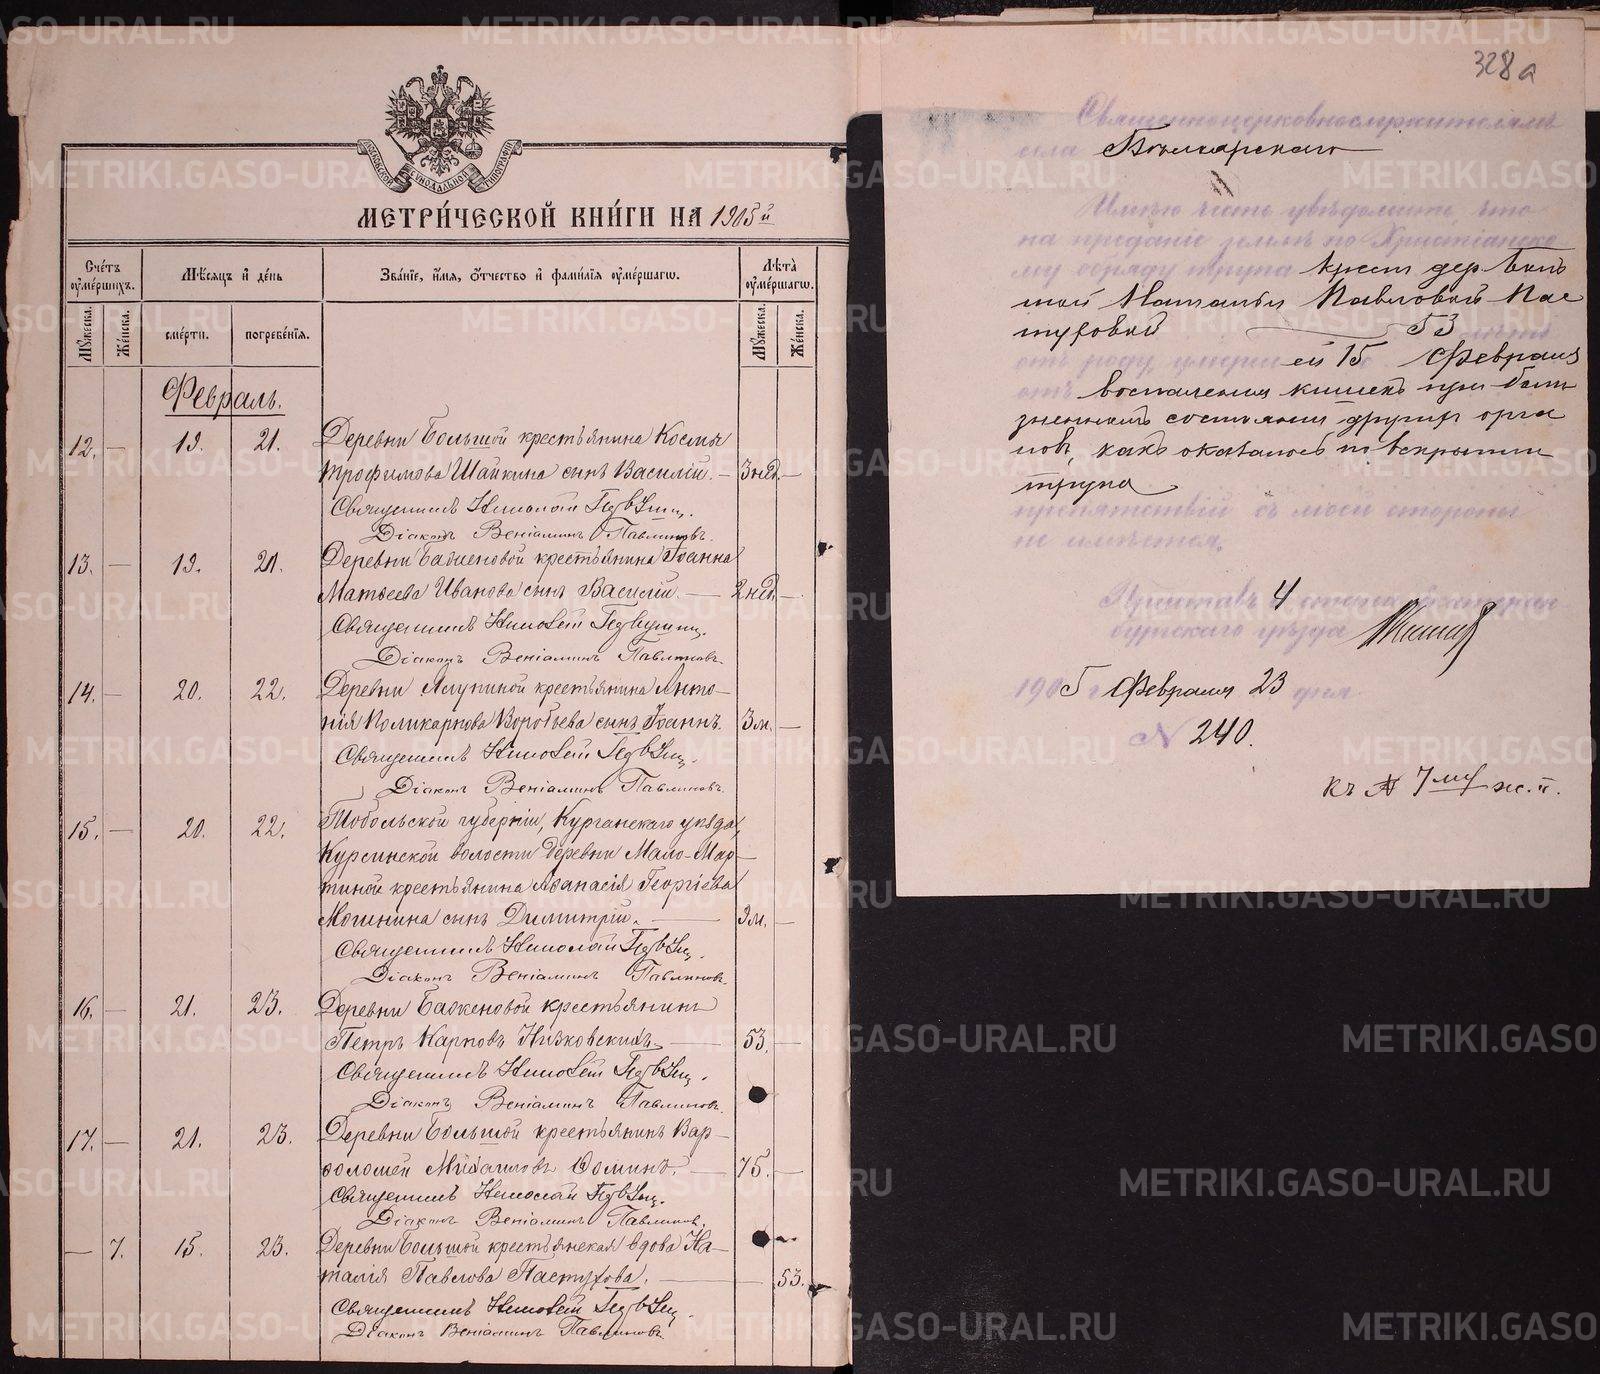 МОСКОВСКОЙ СѴНОДАЛЬНОЙ ТИПОГРАФІИ
МЕТРИ́ЧЕСКОЙ КНИ́ГИ НА 1905й
Сче́тъ ᲂу҆ме́ршихъ.
Мѣ́сяцъ и҆ де́нь
Зва́нїе, и҆́мя, ѻ҆́тчество и҆ фами́лїя ᲂу҆ме́ршагѡ.
Лѣ́та ᲂу҆ме́ршагѡ.
Мꙋ́жеска.
Же́нска.
сме́рти.
погребе́нїя.
Мꙋ́жеска.
Же́нска.
Февраль.
12. — 19. 21. Деревни Большой крестьянина Космы
Трофимова Шайкина сынъ Василій. — 3 нед. —
Священникъ Николай
Діаконъ Веніаминъ Павлиновъ.
13. — 19. 21. Деревни Баженовой крестьянина Іоанна
Матѳеева Иванова сынъ Василій. — 2 нед. —
Священникъ Николай
Діаконъ Веніаминъ Павлиновъ.
14. — 20. 22. Деревни Ялуниной крестьянина Анто-
нія Поликарпова Воробьева сынъ Іоаннъ. 3 м. —
Священникъ Николай
Діаконъ Веніаминъ Павлиновъ.
15. — 20. 22. Тобольской губерніи, Курганскаго уѣзда,
волости деревни Мало-Мар-
тиной крестьянина Аѳанасія Георгіева
Мошнина сынъ Димитрій. — м. —
Священникъ Николай
Діаконъ Веніаминъ Павлиновъ.
16. — 21. 23. Деревни Баженовой крестьянинъ
Петръ Карповъ Низковскихъ. — 53. —
Священникъ Николай
Діаконъ Веніаминъ Павлиновъ.
17. — 21. 23. Деревни Большой крестьянинъ Вар-
ѳоломей Михаиловъ Ѳоминъ. — 75. —
Священникъ Николай
Діаконъ Веніаминъ Павлиновъ.
— 7. 15. 23. Деревни Большой крестьянская вдова На-
талія Павлова Пастухова. — — 53.
Священникъ Николай
Діаконъ Веніаминъ Павлиновъ
328а
Священноцерковнослужителямъ
села
Имѣю честь увѣдомить, что
на преданіе землѣ по Христіанско
му обряду трупа крест. дер. Боль
шой Натальи Павловой Пас
туховой — 53 лѣтъ
отъ роду, умершей 15 Февраля
отъ воспаленія кишекъ при болѣ
зненномъ состояніи другихъ орга
новъ, какъ оказалось по вскрытіи
трупа
препятствій съ моей стороны
не имѣется.
Приставъ 4 стана Екатерин
бургскаго уѣзда
1905 г. Февраля 23 дня
№ 240.
Къ № 7му ж. п.
METRIKI.GASO-URAL.RU